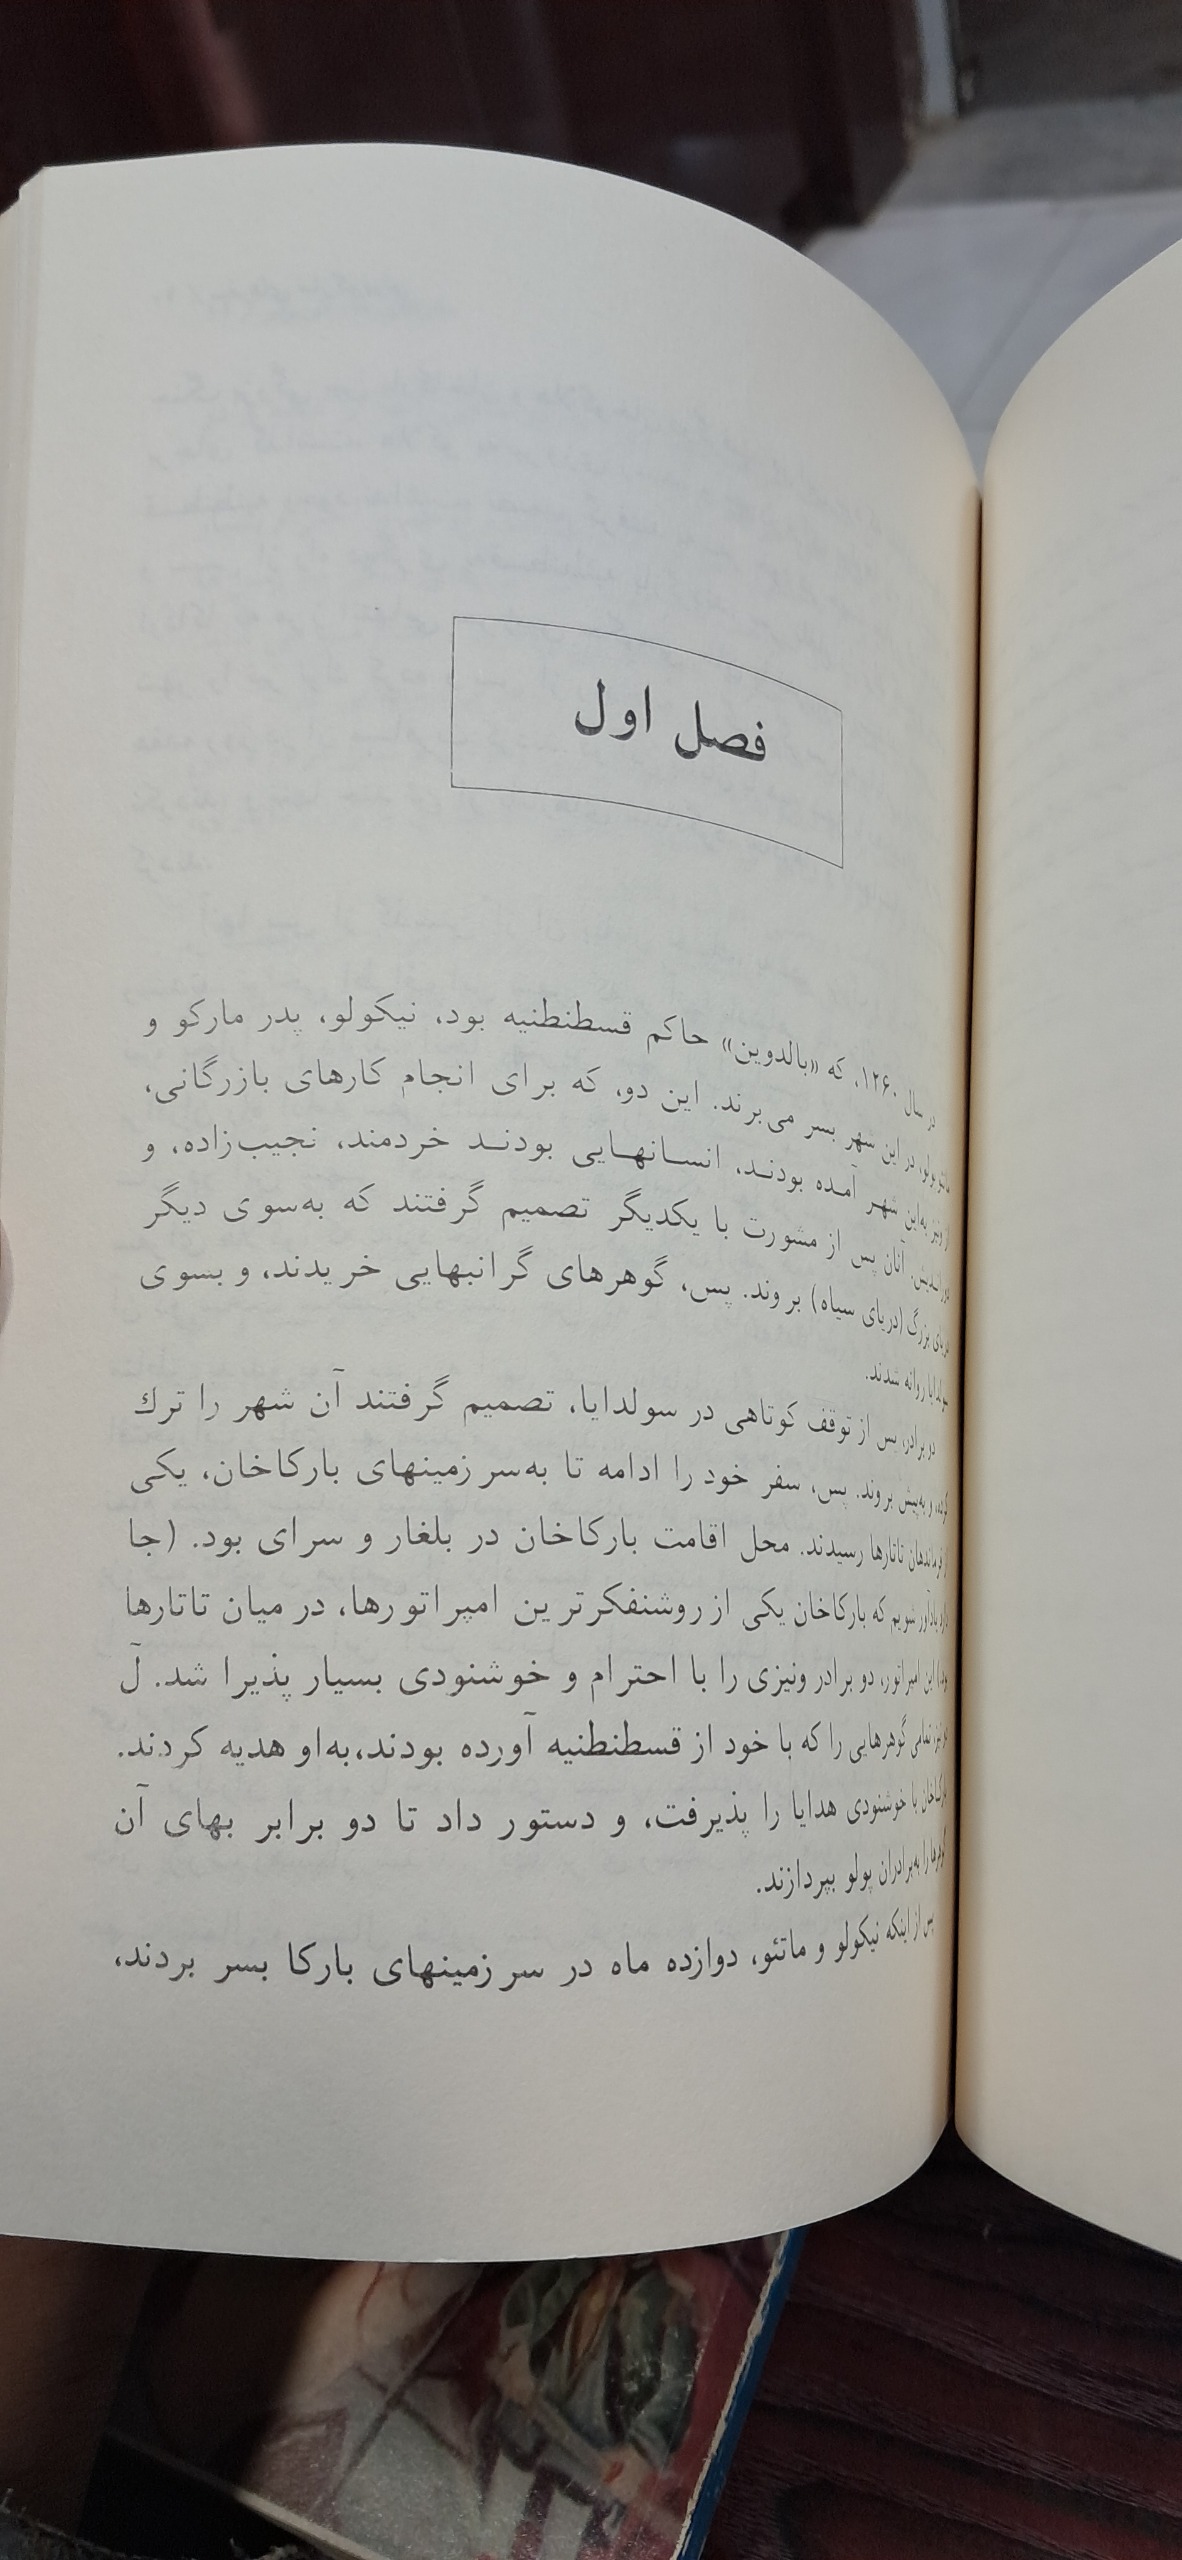 فصل اول
در سال ۱۲۶۰، که «بالدوین» حاکم قسطنطنیه بود، نیکولو، پدر مارکو و
ماتئو پولو، در این شهر بسر می‌برند. این دو، که برای انجام کارهای بازرگانی،
از ونیز به‌این شهر آمده بودند، انسانهایی بودند خردمند، نجیب‌زاده، و
دوراندیش. آنان پس از مشورت با یکدیگر تصمیم گرفتند که به‌سوی دیگر
دریای بزرگ (دریای سیاه) بروند. پس، گوهرهای گرانبهایی خریدند، و بسوی
سولدایا روانه شدند.
دو برادر، پس از توقف کوتاهی در سولدایا، تصمیم گرفتند آن شهر را ترك
کرده، و به‌پیش بروند. پس، سفر خود را ادامه تا به‌سرزمینهای بارکاخان، یکی
از فرماندهان تاتارها رسیدند. محل اقامت بارکاخان در بلغار و سرای بود. (جا
دارد یادآور شویم که بارکاخان یکی از روشنفکرترین امپراتورها، در میان تاتارها
بود) این امپراتور، دو برادر ونیزی را با احترام و خوشنودی بسیار پذیرا شد. آ
نیز تمامی گوهرهایی را که با خود از قسطنطنیه آورده بودند، به‌او هدیه کردند.
بارکاخان با خوشنودی هدایا را پذیرفت، و دستور داد تا دو برابر بهای آن
گوهرها را به‌برادران پولو بپردازند.
پس از اینکه نیکولو و ماتئو، دوازده ماه در سرزمینهای بارکا بسر بردند،